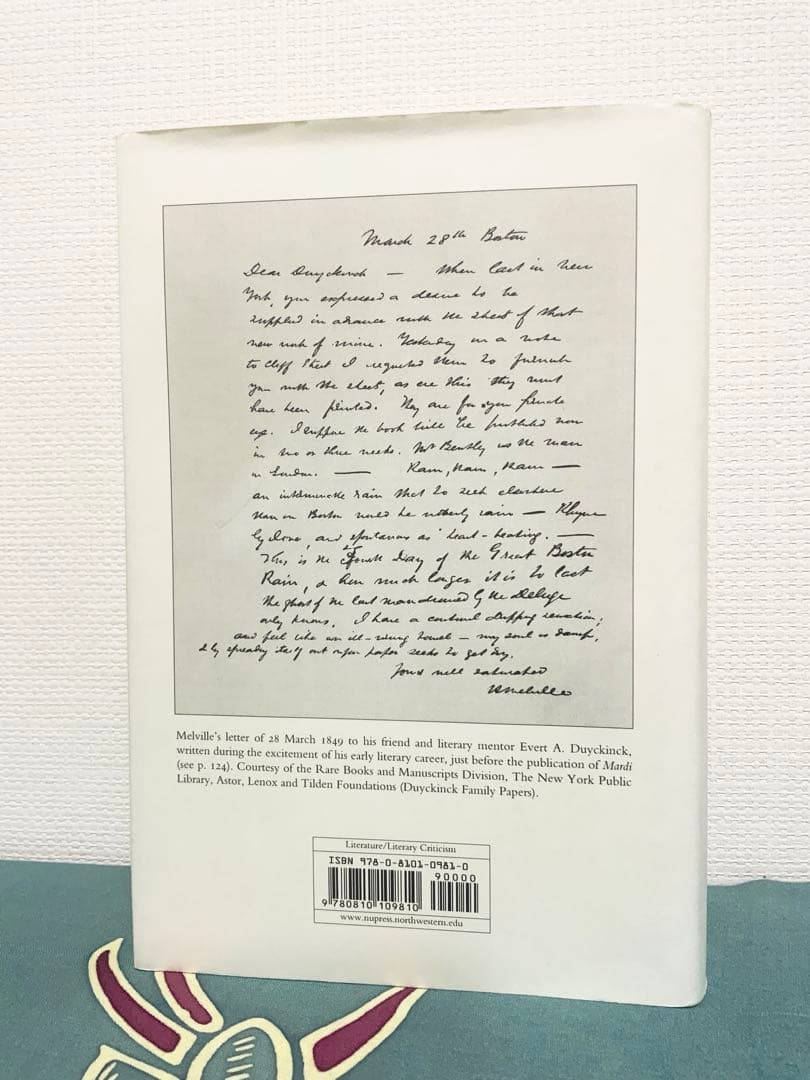 March 28th Boston
Dear Duyckinck — When last in New
York, you expressed a desire to be
supplied in advance with the sheets of that
new work of mine. Yesterday in a note
to Cliff Street I requested them to furnish
you with the sheets, as ere this they must
have been printed. They are for your private
eye. I suppose the book will be published now
in two or three weeks. Mr Bently is the man
in London. — Rain, Rain, Rain —
an interminable rain that to seek elsewhere
than in Boston would be utterly vain — Rhyme
by Jove, and spontanious as heart-beating. —
This is the Fourth Day of the Great Boston
Rain, & how much longer it is to last
the ghost of the last man drowned by the Deluge
only knows. I have a continual dripping sensation;
and feel like an ill-wrung towel — my soul is damp,
& by spreading itself out upon paper seeks to get dry.
Your well saturated
H Melville
Melville's letter of 28 March 1849 to his friend and literary mentor Evert A. Duyckinck,
written during the excitement of his early literary career, just before the publication of Mardi
(see p. 124). Courtesy of the Rare Books and Manuscripts Division, The New York Public
Library, Astor, Lenox and Tilden Foundations (Duyckinck Family Papers).
Literature/Literary Criticism
ISBN 978-0-8101-0981-0
90000
9 780810 109810
www.nupress.northwestern.edu